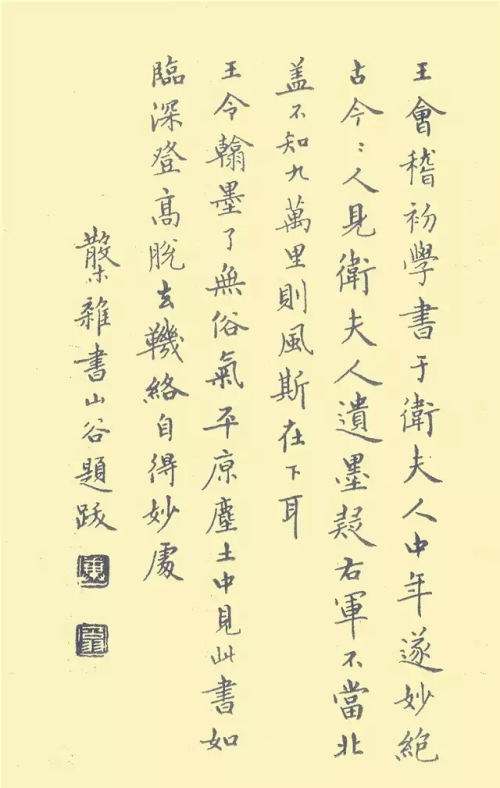 王會稽初學書于衛夫人中年遂妙絕
古今〻人見衛夫人遺墨疑右軍不當北
盖不知九萬里則風斯在下耳
王令翰墨了無俗氣平原塵土中見此書如
臨深登高脫去鞿絡自得妙處
雜書山谷題跋